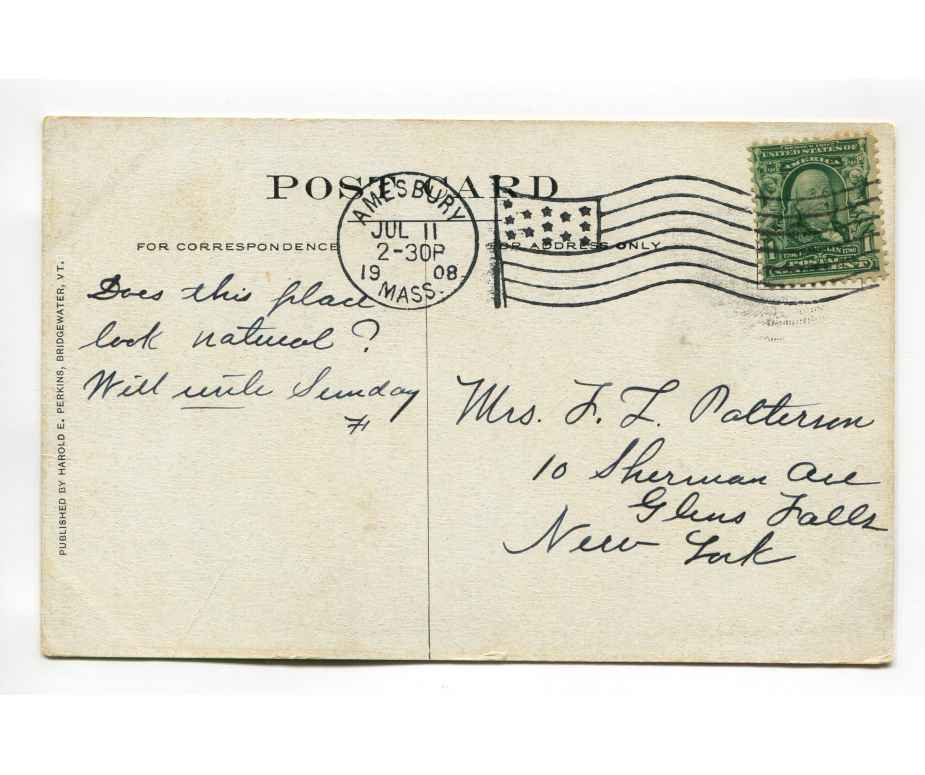 POST CARD
FOR CORRESPONDENCE
FOR ADDRESS ONLY
AMESBURY
JUL 11
2-30P
19 08
MASS.
UNITED STATES OF
AMERICA
1
POSTAGE
Does this place
look natural?
Will write Sunday
F
Mrs. F. L. Patterson
10 Sherman Ave
Glens Falls
New York
PUBLISHED BY HAROLD E. PERKINS, BRIDGEWATER, VT.